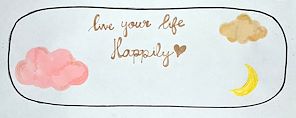 live your life
Happily